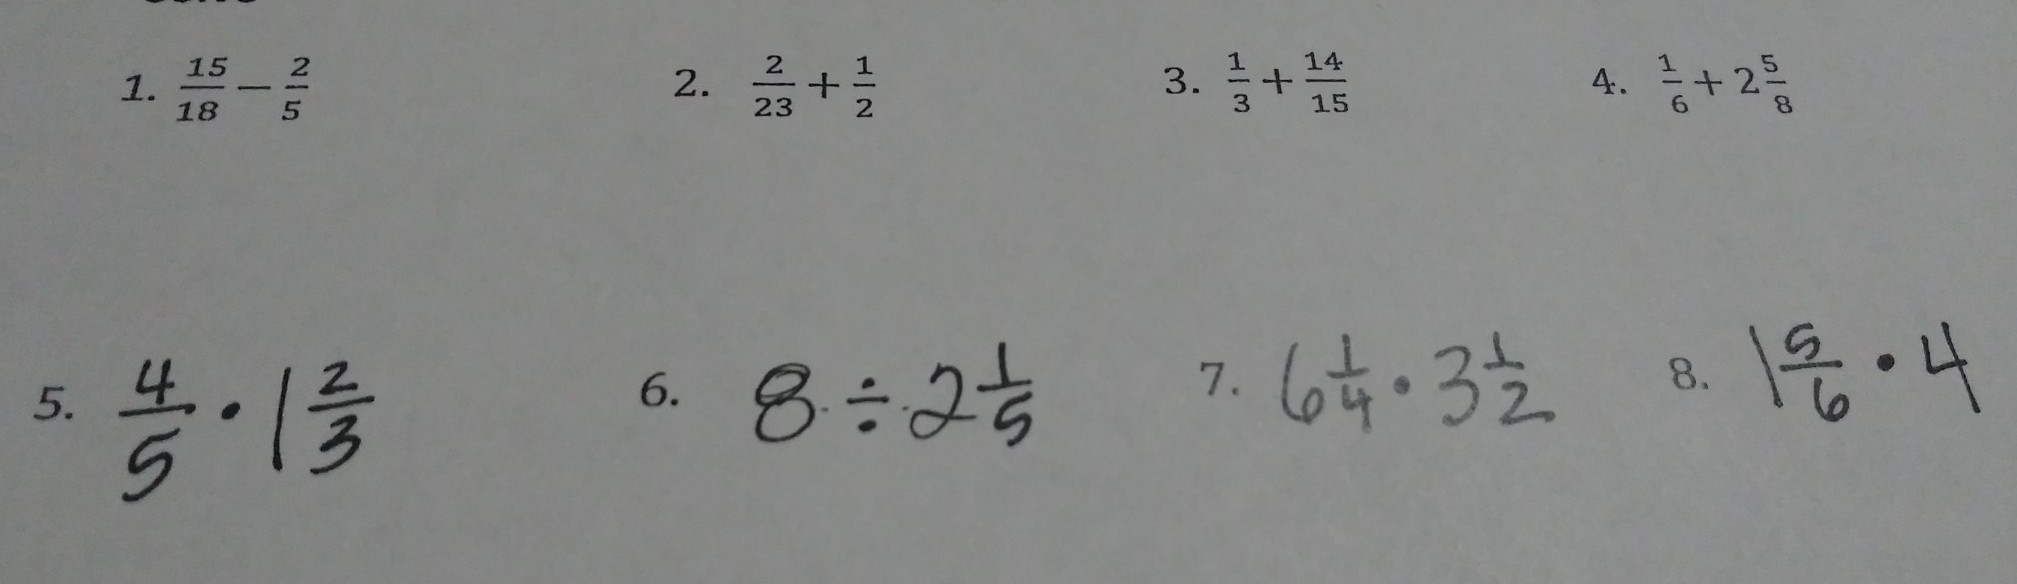 1. 15/18 − 2/5 2. 2/23 + 1/2 3. 1/3 + 14/15 4. 1/6 + 2 5/8
5. 4/5 · 1 2/3 6. 8 ÷ 2 1/5 7. 6 1/4 · 3 1/2 8. 1 5/6 · 4